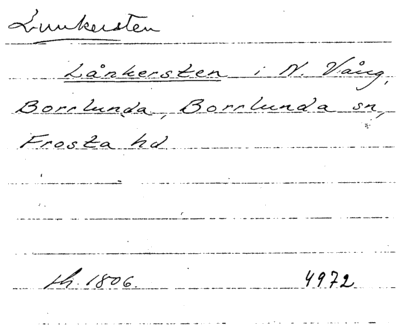 Lunkersten
Lånkersten i N. Vång,
Borrlunda, Borrlunda sn,
Frosta hd
sh. 1806. 4972